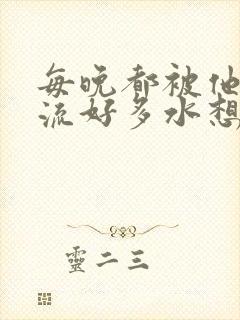 每晚都被他
流好多水想
靈二三